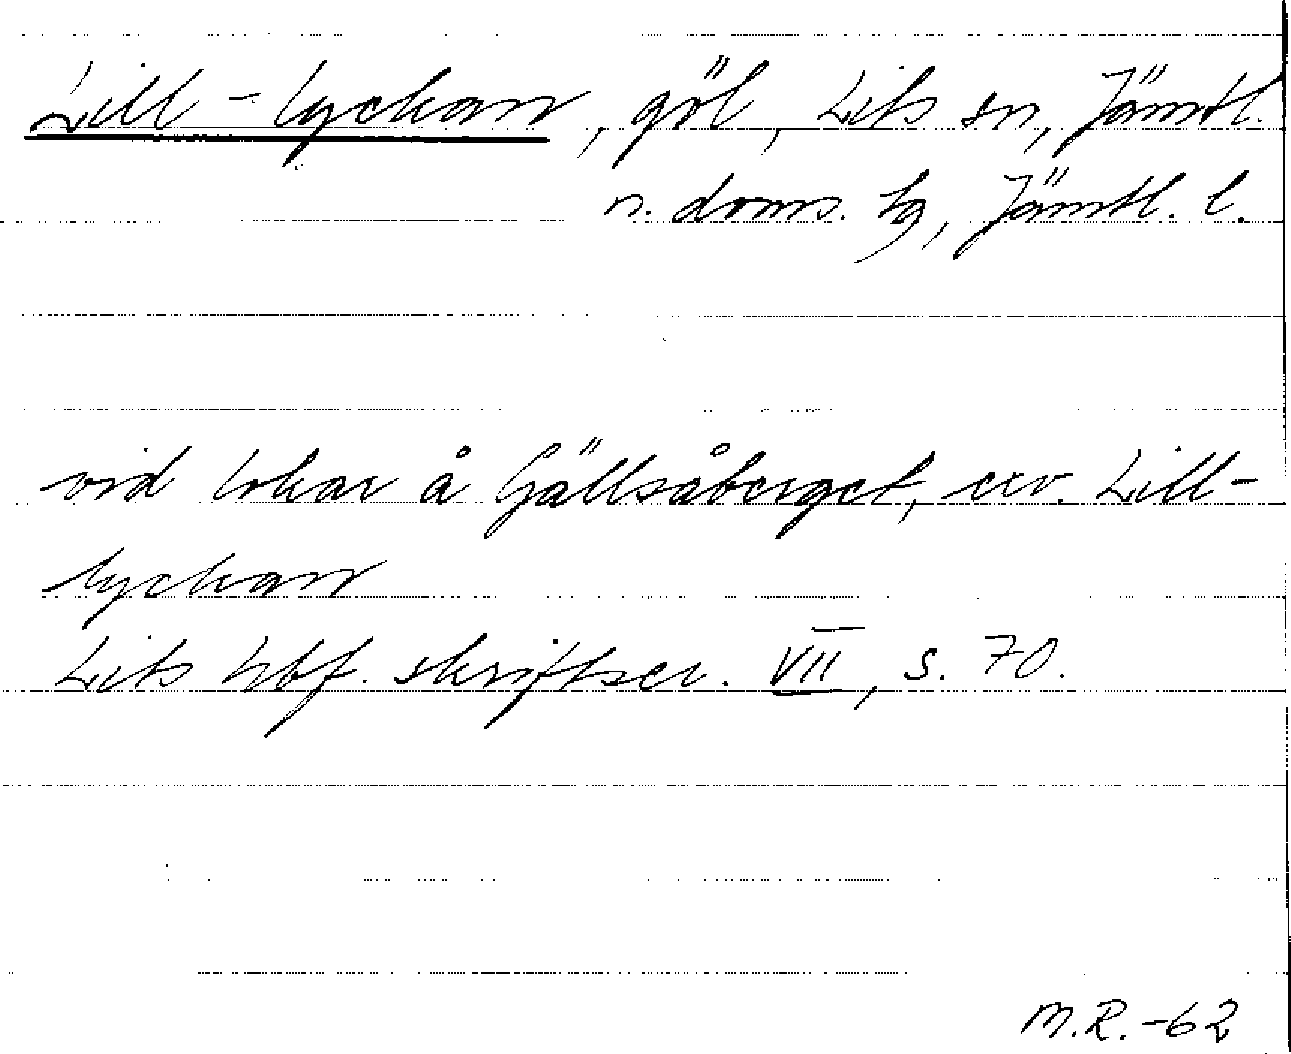 Lill-lyckan, göl, Lits sn, Jämtl.
n. doms. tg, Jämtl. l.
vid lokar å Gällsåberget, ev. Lill-
lyckan
Lits hbf. skriftser. VII, s. 70.
M.R.-62